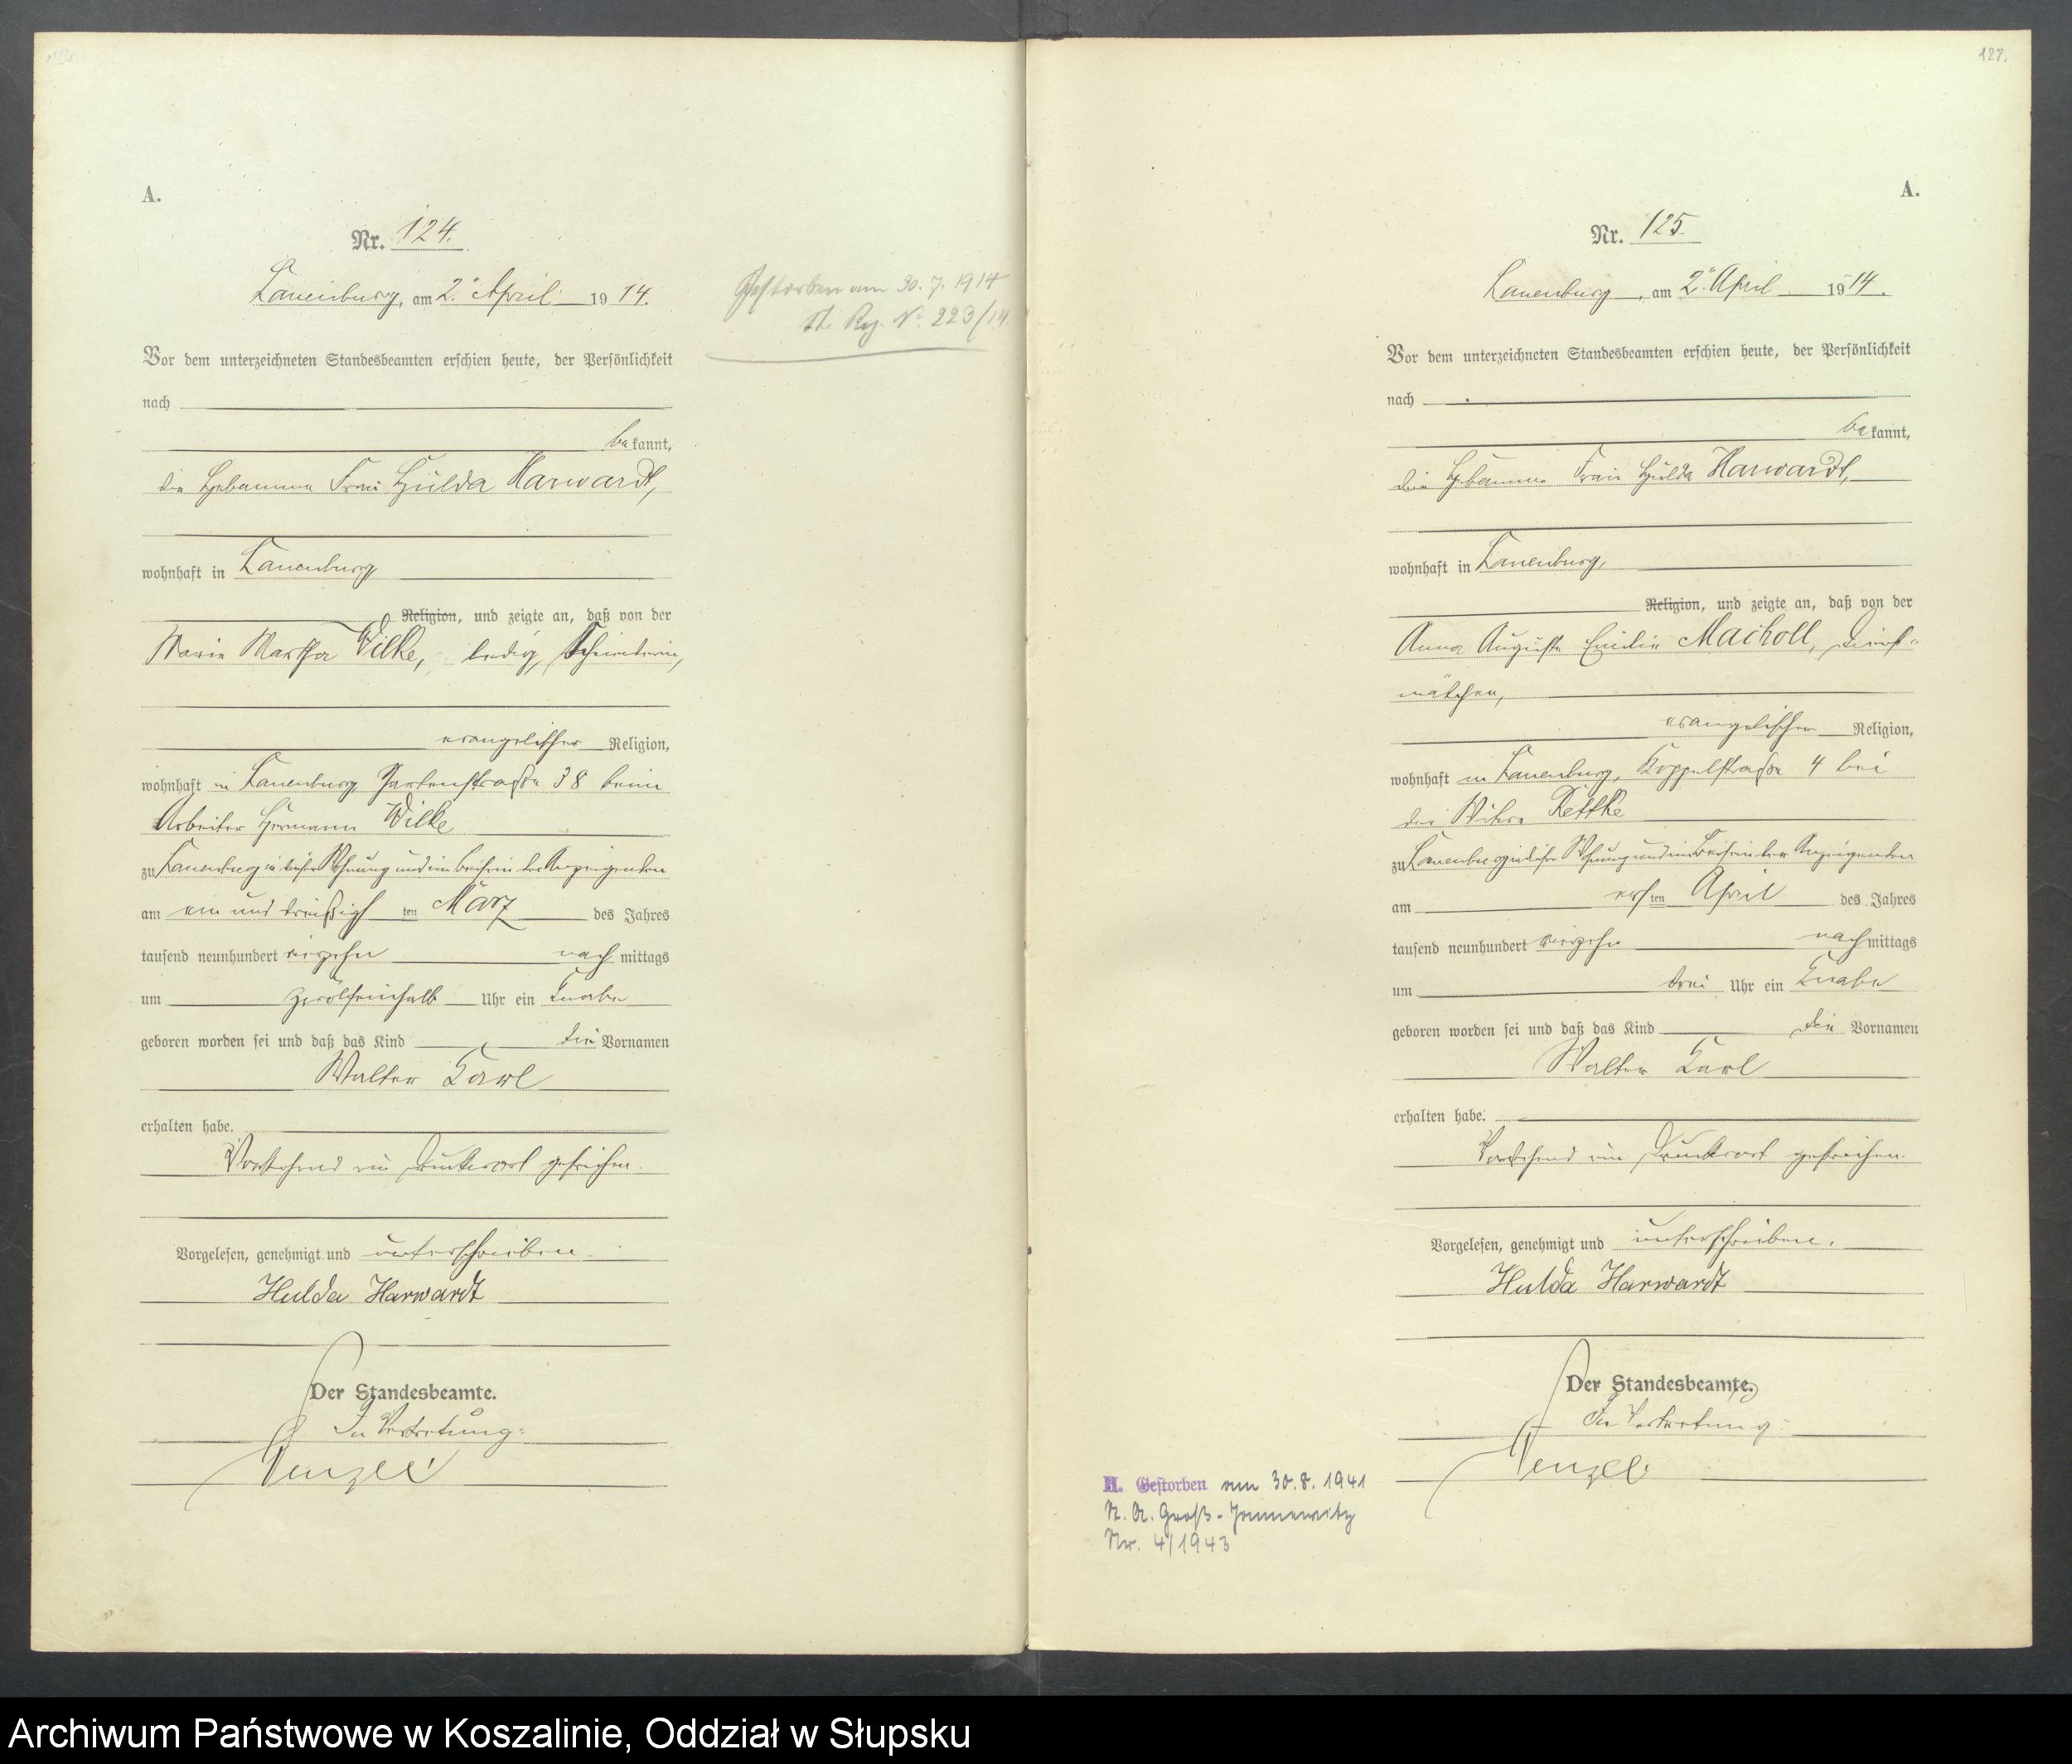 A.
Nr. 124.
Lauenburg, am 2. April 19 14.
Gestorben am 30. 7. 1914
St. Reg. No. 223/14.
Vor dem unterzeichneten Standesbeamten erschien heute, der Persönlichkeit
nach
bekannt,
die Hebamme Frau Hulda Harwardt,
wohnhaft in Lauenburg
Religion, und zeigte an, daß von der
Marie Martha Wilke, ledig, Schneiderin,
evangelischer Religion,
wohnhaft in Lauenburg Gartenstraße 38 beim
Arbeiter Hermann Wilke
zu Lauenburg in dieser Wohnung und im Beisein der Anzeigenden
am ein und dreißigsten März des Jahres
tausend neunhundert vierzehn nachmittags
um zwölfeinhalb Uhr ein Knabe
geboren worden sei und daß das Kind die Vornamen
Walter Karl
erhalten habe.
Vorstehend ein Druckwort gestrichen.
Vorgelesen, genehmigt und unterschrieben.
Hulda Harwardt
Der Standesbeamte.
In Vertretung:
Wenzel
127.
A.
Nr. 125.
Lauenburg, am 2. April 19 14.
Vor dem unterzeichneten Standesbeamten erschien heute, der Persönlichkeit
nach
bekannt,
die Hebamme Frau Hulda Harwardt,
wohnhaft in Lauenburg,
Religion, und zeigte an, daß von der
Anna Auguste Emilie Macholl, Dienst-
mädchen,
evangelischer Religion,
wohnhaft in Lauenburg, Koppelstraße 4 bei
der Witwe Rettke
zu Lauenburg in dieser Wohnung und im Beisein der Anzeigenden
am ersten April des Jahres
tausend neunhundert vierzehn nachmittags
um drei Uhr ein Knabe
geboren worden sei und daß das Kind die Vornamen
Walter Karl
erhalten habe.
Vorstehend ein Druckwort gestrichen.
Vorgelesen, genehmigt und unterschrieben.
Hulda Harwardt
Der Standesbeamte.
In Vertretung:
Wenzel
H. Gestorben am 30.8.1941
St. A. Groß-Jannewitz
Nr. 4/1943
Archiwum Państwowe w Koszalinie, Oddział w Słupsku